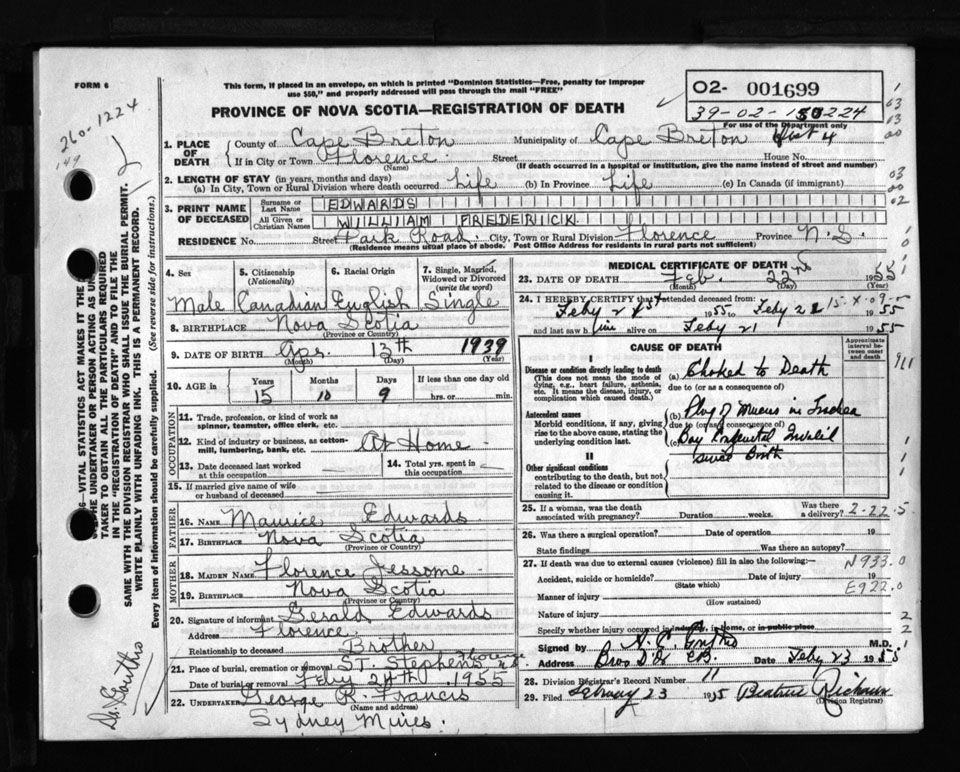 FORM 6
This form, if placed in an envelope, on which is printed "Dominion Statistics—Free, penalty for improper
use $50," and properly addressed will pass through the mail "FREE"
O2- 001699
39-02-150224
For use of the Department only
260-1224
PROVINCE OF NOVA SCOTIA—REGISTRATION OF DEATH
1. PLACE OF DEATH
County of Cape Breton Municipality of Cape Breton Dist 4
If in City or Town Florence. Street House No.
(Name) (If death occurred in a hospital or institution, give the name instead of street and number)
2. LENGTH OF STAY (in years, months and days)
(a) In City, Town or Rural Division where death occurred Life (b) In Province Life (c) In Canada (if immigrant)
3. PRINT NAME OF DECEASED
Surname or Last Name EDWARDS
All Given or Christian Names WILLIAM FREDERICK
RESIDENCE No. Street Park Road. City, Town or Rural Division Florence Province N.S.
(Residence means usual place of abode. Post Office Address for residents in rural parts not sufficient)
4. Sex
Male
5. Citizenship (Nationality)
Canadian
6. Racial Origin
English
7. Single, Married, Widowed or Divorced (write the word)
Single
8. BIRTHPLACE Nova Scotia
(Province or Country)
9. DATE OF BIRTH Apr. 13th 1939
(Month) (Day) (Year)
10. AGE in Years Months Days If less than one day old
15 10 9 hrs. or min.
OCCUPATION
11. Trade, profession, or kind of work as spinner, teamster, office clerk, etc.
12. Kind of industry or business, as cotton-mill, lumbering, bank, etc. At Home -
13. Date deceased last worked at this occupation
14. Total yrs. spent in this occupation
15. If married give name of wife or husband of deceased
FATHER
16. NAME Maurice Edwards
17. BIRTHPLACE Nova Scotia
(Province or Country)
MOTHER
18. MAIDEN NAME Florence Jessome
19. BIRTHPLACE Nova Scotia
(Province or Country)
20. Signature of informant Gerald Edwards
Address Florence.
Relationship to deceased Brother
21. Place of burial, cremation or removal St. Stephens Florence N.S.
Date of burial or removal Feby 24th 1955
22. UNDERTAKER George R. Francis
(Name and address)
Sydney Mines.
MEDICAL CERTIFICATE OF DEATH
23. DATE OF DEATH Feb. 22nd 1955
(Month) (Day)
24. I HEREBY CERTIFY that I attended deceased from:
Feby 21st 1955 to Feby 22 1955
and last saw him alive on Feby 21 1955
CAUSE OF DEATH
Approximate interval between onset and death
I
Disease or condition directly leading to death
(This does not mean the mode of dying, e.g., heart failure, asthenia, etc. It means the disease, injury, or complication which caused death.)
(a) Choked to Death
due to (or as a consequence of)
Antecedent causes
Morbid conditions, if any, giving rise to the above cause, stating the underlying condition last.
(b) Plug of Mucus in
due to (or as a consequence of)
(c) Invalid
since Birth
II
Other significant conditions
contributing to the death, but not related to the disease or condition causing it.
911
25. If a woman, was the death associated with pregnancy? Duration weeks. Was there a delivery?
2-22-5
26. Was there a surgical operation? Date of operation 19
State findings Was there an autopsy?
27. If death was due to external causes (violence) fill in also the following:—
Accident, suicide or homicide? Date of injury 19
(State which)
N933.0
Manner of injury
(How sustained)
E922.0
Nature of injury
Specify whether injury occurred in industry, in home, or in public place
Signed by M.D.
Address Date Feby 23 1955
28. Division Registrar's Record Number 11
29. Filed February 23 1955 Beatrice
(Division Registrar)
VITAL STATISTICS ACT MAKES IT THE
THE UNDERTAKER OR PERSON ACTING AS
TAKER TO OBTAIN ALL THE PARTICULARS REQUIRED
IN THE "REGISTRATION OF DEATH" AND TO FILE THE
SAME WITH THE DIVISION REGISTRAR WHO SHALL ISSUE THE BURIAL PERMIT.
WRITE PLAINLY WITH UNFADING INK. THIS IS A PERMANENT RECORD.
Every item of information should be carefully supplied. (See reverse side for instructions.)